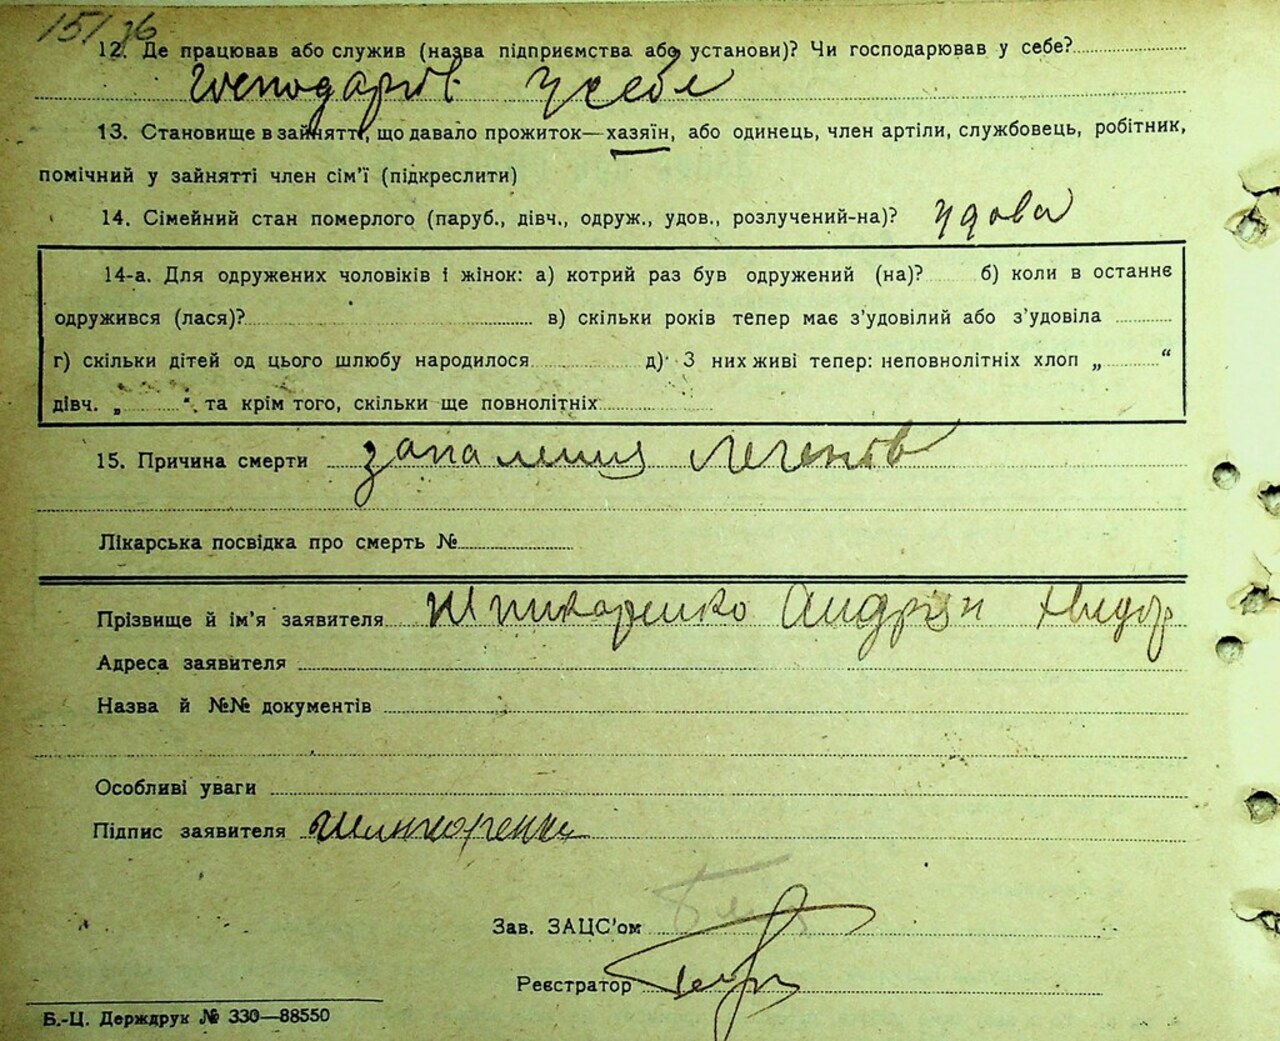 15/26
12. Де працював або служив (назва підприємства або установи)? Чи господарював у себе?
господарюв у себе
13. Становище в зайнятті, що давало прожиток—хазяїн, або одинець, член артіли, службовець, робітник,
помічний у зайнятті член сім'ї (підкреслити)
14. Сімейний стан померлого (паруб., дівч., одруж., удов., розлучений-на)? удова
14-а. Для одружених чоловіків і жінок: а) котрий раз був одружений (на)? б) коли в останнє
одружився (лася)? в) скільки років тепер має з'удовілий або з'удовіла
г) скільки дітей од цього шлюбу народилося д) З них живі тепер: неповнолітніх хлоп „ “
дівч. „ “. та крім того, скільки ще повнолітніх
15. Причина смерти запалення легенів
Лікарська посвідка про смерть №
Прізвище й ім'я заявителя Андрій
Адреса заявителя
Назва й №№ документів
Особливі уваги
Підпис заявителя
Зав. ЗАЦС'ом
Реєстратор
Б.-Ц. Держдрук № 330—88550